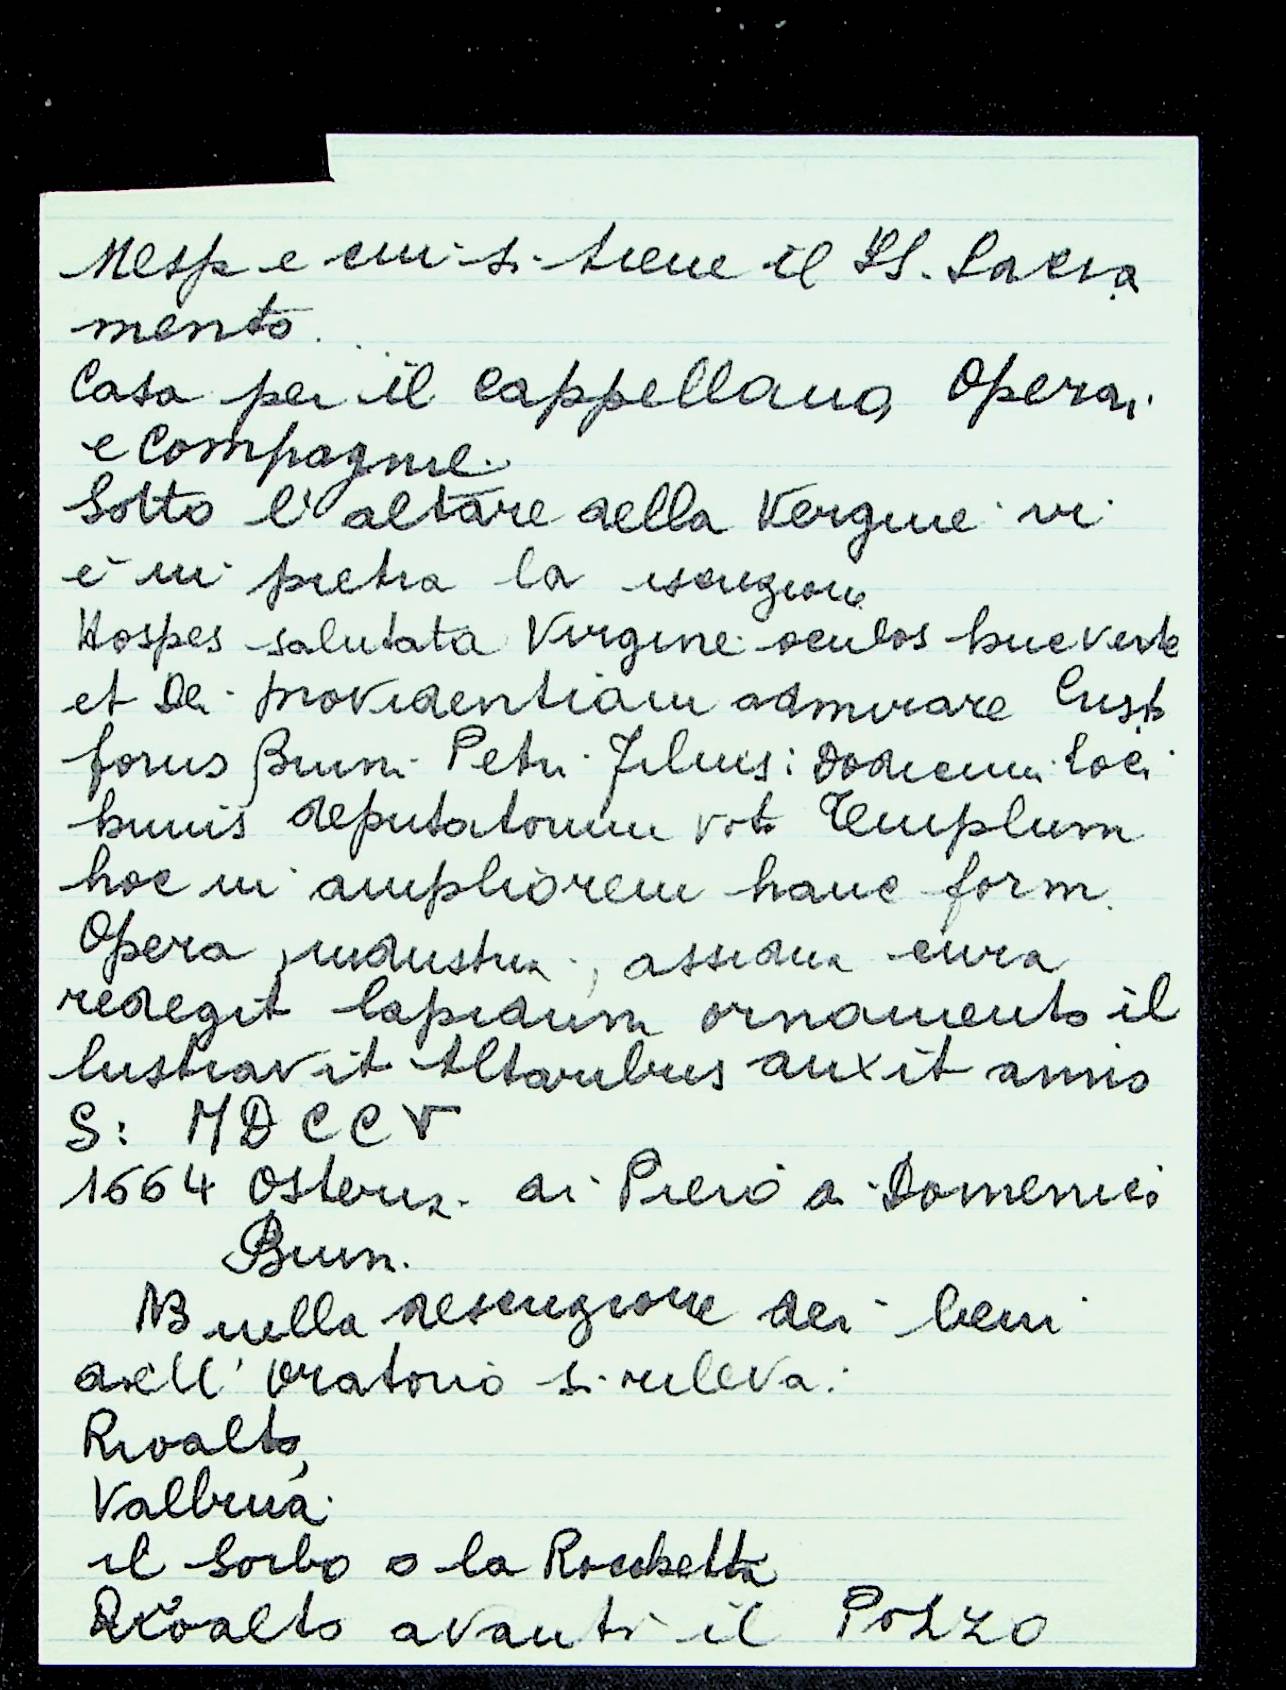 Mesp e cui si tiene il SS. Sacra
mento.
Casa per il cappellano, Operai
e Compagnie.
Sotto l'altare della Vergine vi
è in pietra la iscrizione
Hospes salutata Virgine oculos huc verte
et Dei providentiam admirare Crist
forus Bruni Petri Filius: Dodicim Loci
huius deputatorum vot Templum
hoc in ampliorem hanc form.
Opera, industria, assidua cura
redegit lapidum ornamento il
lustravit Altaribus auxit anno
S: MDCCV
1664 Osteria di Piero di Domenico
Bruni.
NB nella descrizione dei beni
dell' Oratorio si rileva:
Rivalto,
Valbrua
il Sorbo o la Rocchetta
Rivoalto avanti il Pozzo